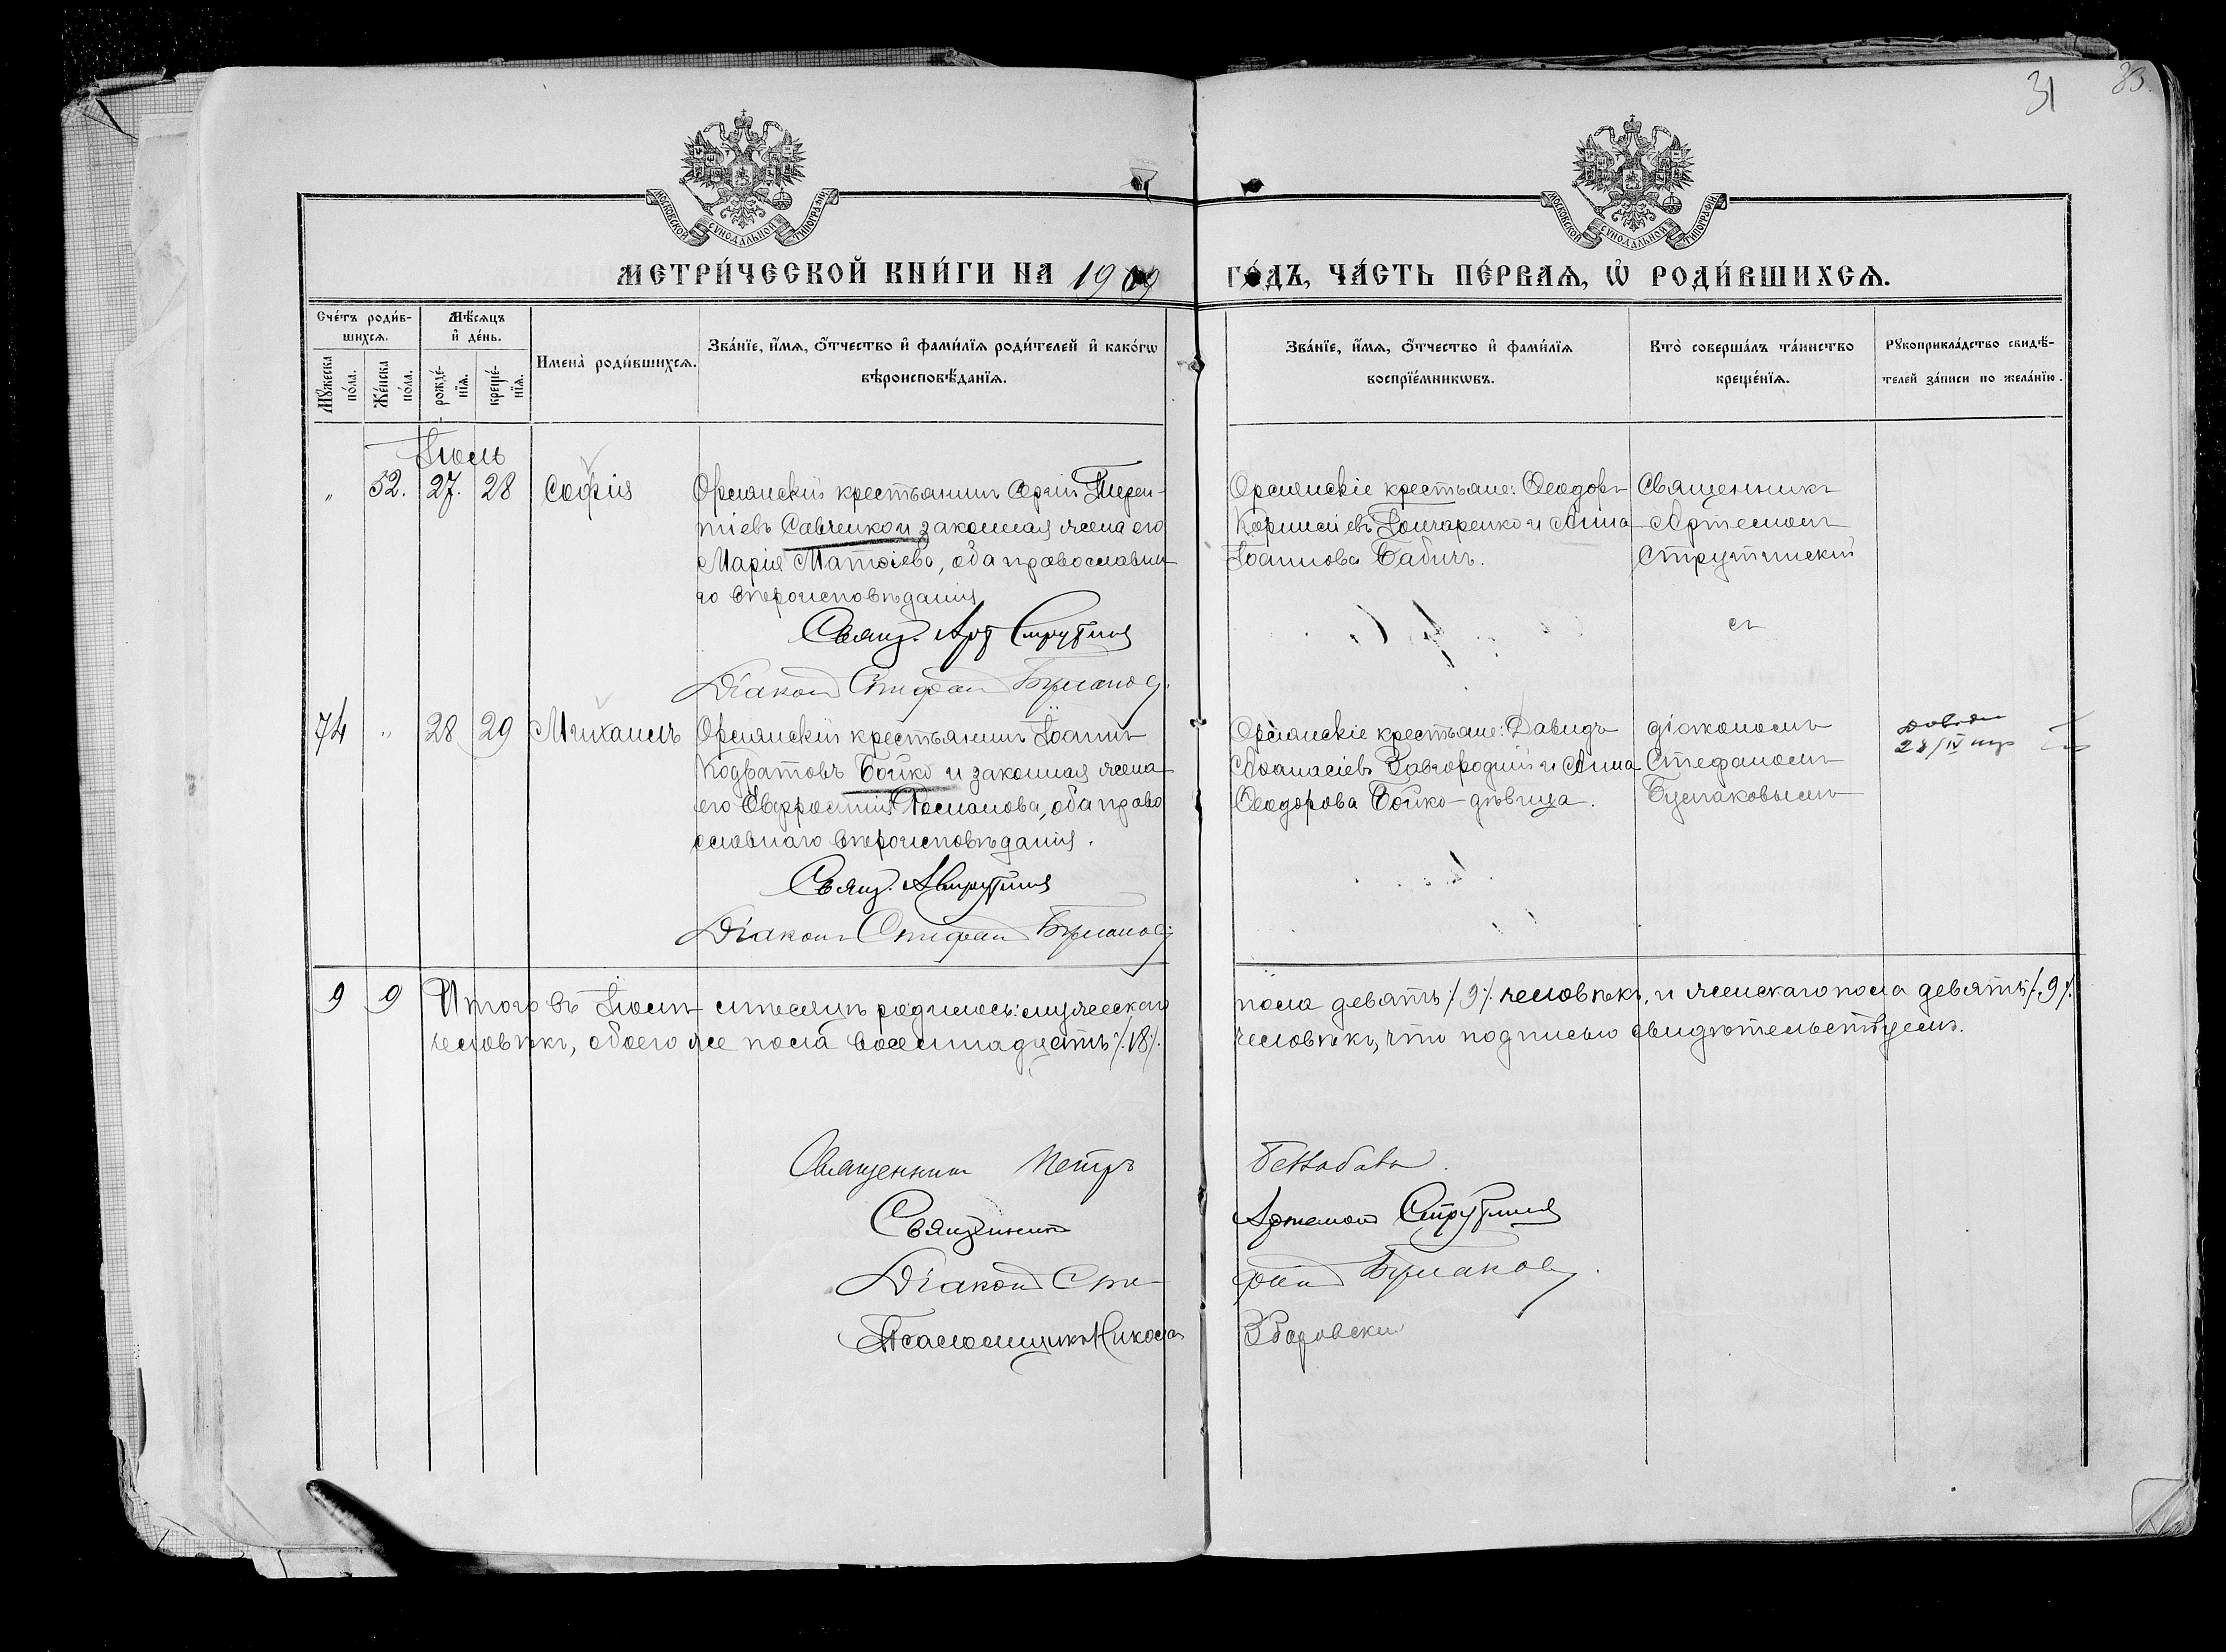 31
33.
МОСКОВСКОЙ СѴНОДАЛЬНОЙ ТИПОГРАФІИ
МОСКОВСКОЙ СѴНОДАЛЬНОЙ ТИПОГРАФІИ
МЕТРИ́ЧЕСКОЙ КНИ́ГИ НА 1909
ГО́ДЪ, ЧА́СТЬ ПЕ́РВАѦ, Ѿ РОДИ́ВШИХСѦ.
Сче́тъ роди́в-
шихсѧ.
Мꙋ́жеска по́ла.
Же́нска по́ла.
Мѣ́сѧцъ
и҆ де́нь.
рожде́-
нїѧ.
креще́-
нїѧ.
Имена̀ роди́вшихсѧ.
Зва́нїе, и҆́мѧ, ѻ҆́тчество и҆ фами́лїѧ роди́телей и҆ како́гѡ
вѣроисповѣ́данїѧ.
Зва́нїе, и҆́мѧ, ѻ҆́тчество и҆ фами́лїѧ
воспрїе́мникѡвъ.
Кто̀ соверша́лъ та́инство
креще́нїѧ.
Рꙋкоприкла́дство свидѣ́-
телей за́писи по жела́нїю.
Іюль
" 52. 27. 28 Софія
Орлянскій крестьянинъ Сергій Терен-
тіевъ Савченко и законная жена его
Марія Матѳіева, оба православна-
го вѣроисповѣданія
Свящ. Арт Струтинс
Діаконъ Стефанъ Бурлаков
Орлянскіе крестьяне: Ѳеодоръ
Корниліевъ Гончаренко и Анна
Іоаннова Бабичъ.
Священникъ
Артемонъ
Струтинскій
съ
74 " 28 29 Михаилъ
Орлянскій крестьянинъ Іоаннъ
Кодратовъ Бойко и законная жена
его Евфросинія Романова, оба право
славнаго вѣроисповѣданія.
Свящ. А Струтинс
Діаконъ Стефанъ Бурлаков
Орлянскіе крестьяне: Давидъ
Аѳанасіевъ Завгородній и Анна
Ѳеодорова Бойко - дѣвица.
діакономъ
Стефаномъ
Бурлаковымъ
9 9 Итого въ Іюлѣ мѣсяцѣ родилось: мужескаго
пола девять /9/ человѣкъ, и женскаго пола девять /9/
человѣкъ, обоего же пола восемнадцать /18/.
человѣкъ, что подписью свидѣтельствуемъ.
Священникъ Петръ
Священникъ Артемонъ Струтинс
Діаконъ Сте-
фанъ Бурлаков
Псаломщикъ Никола
Зборовски